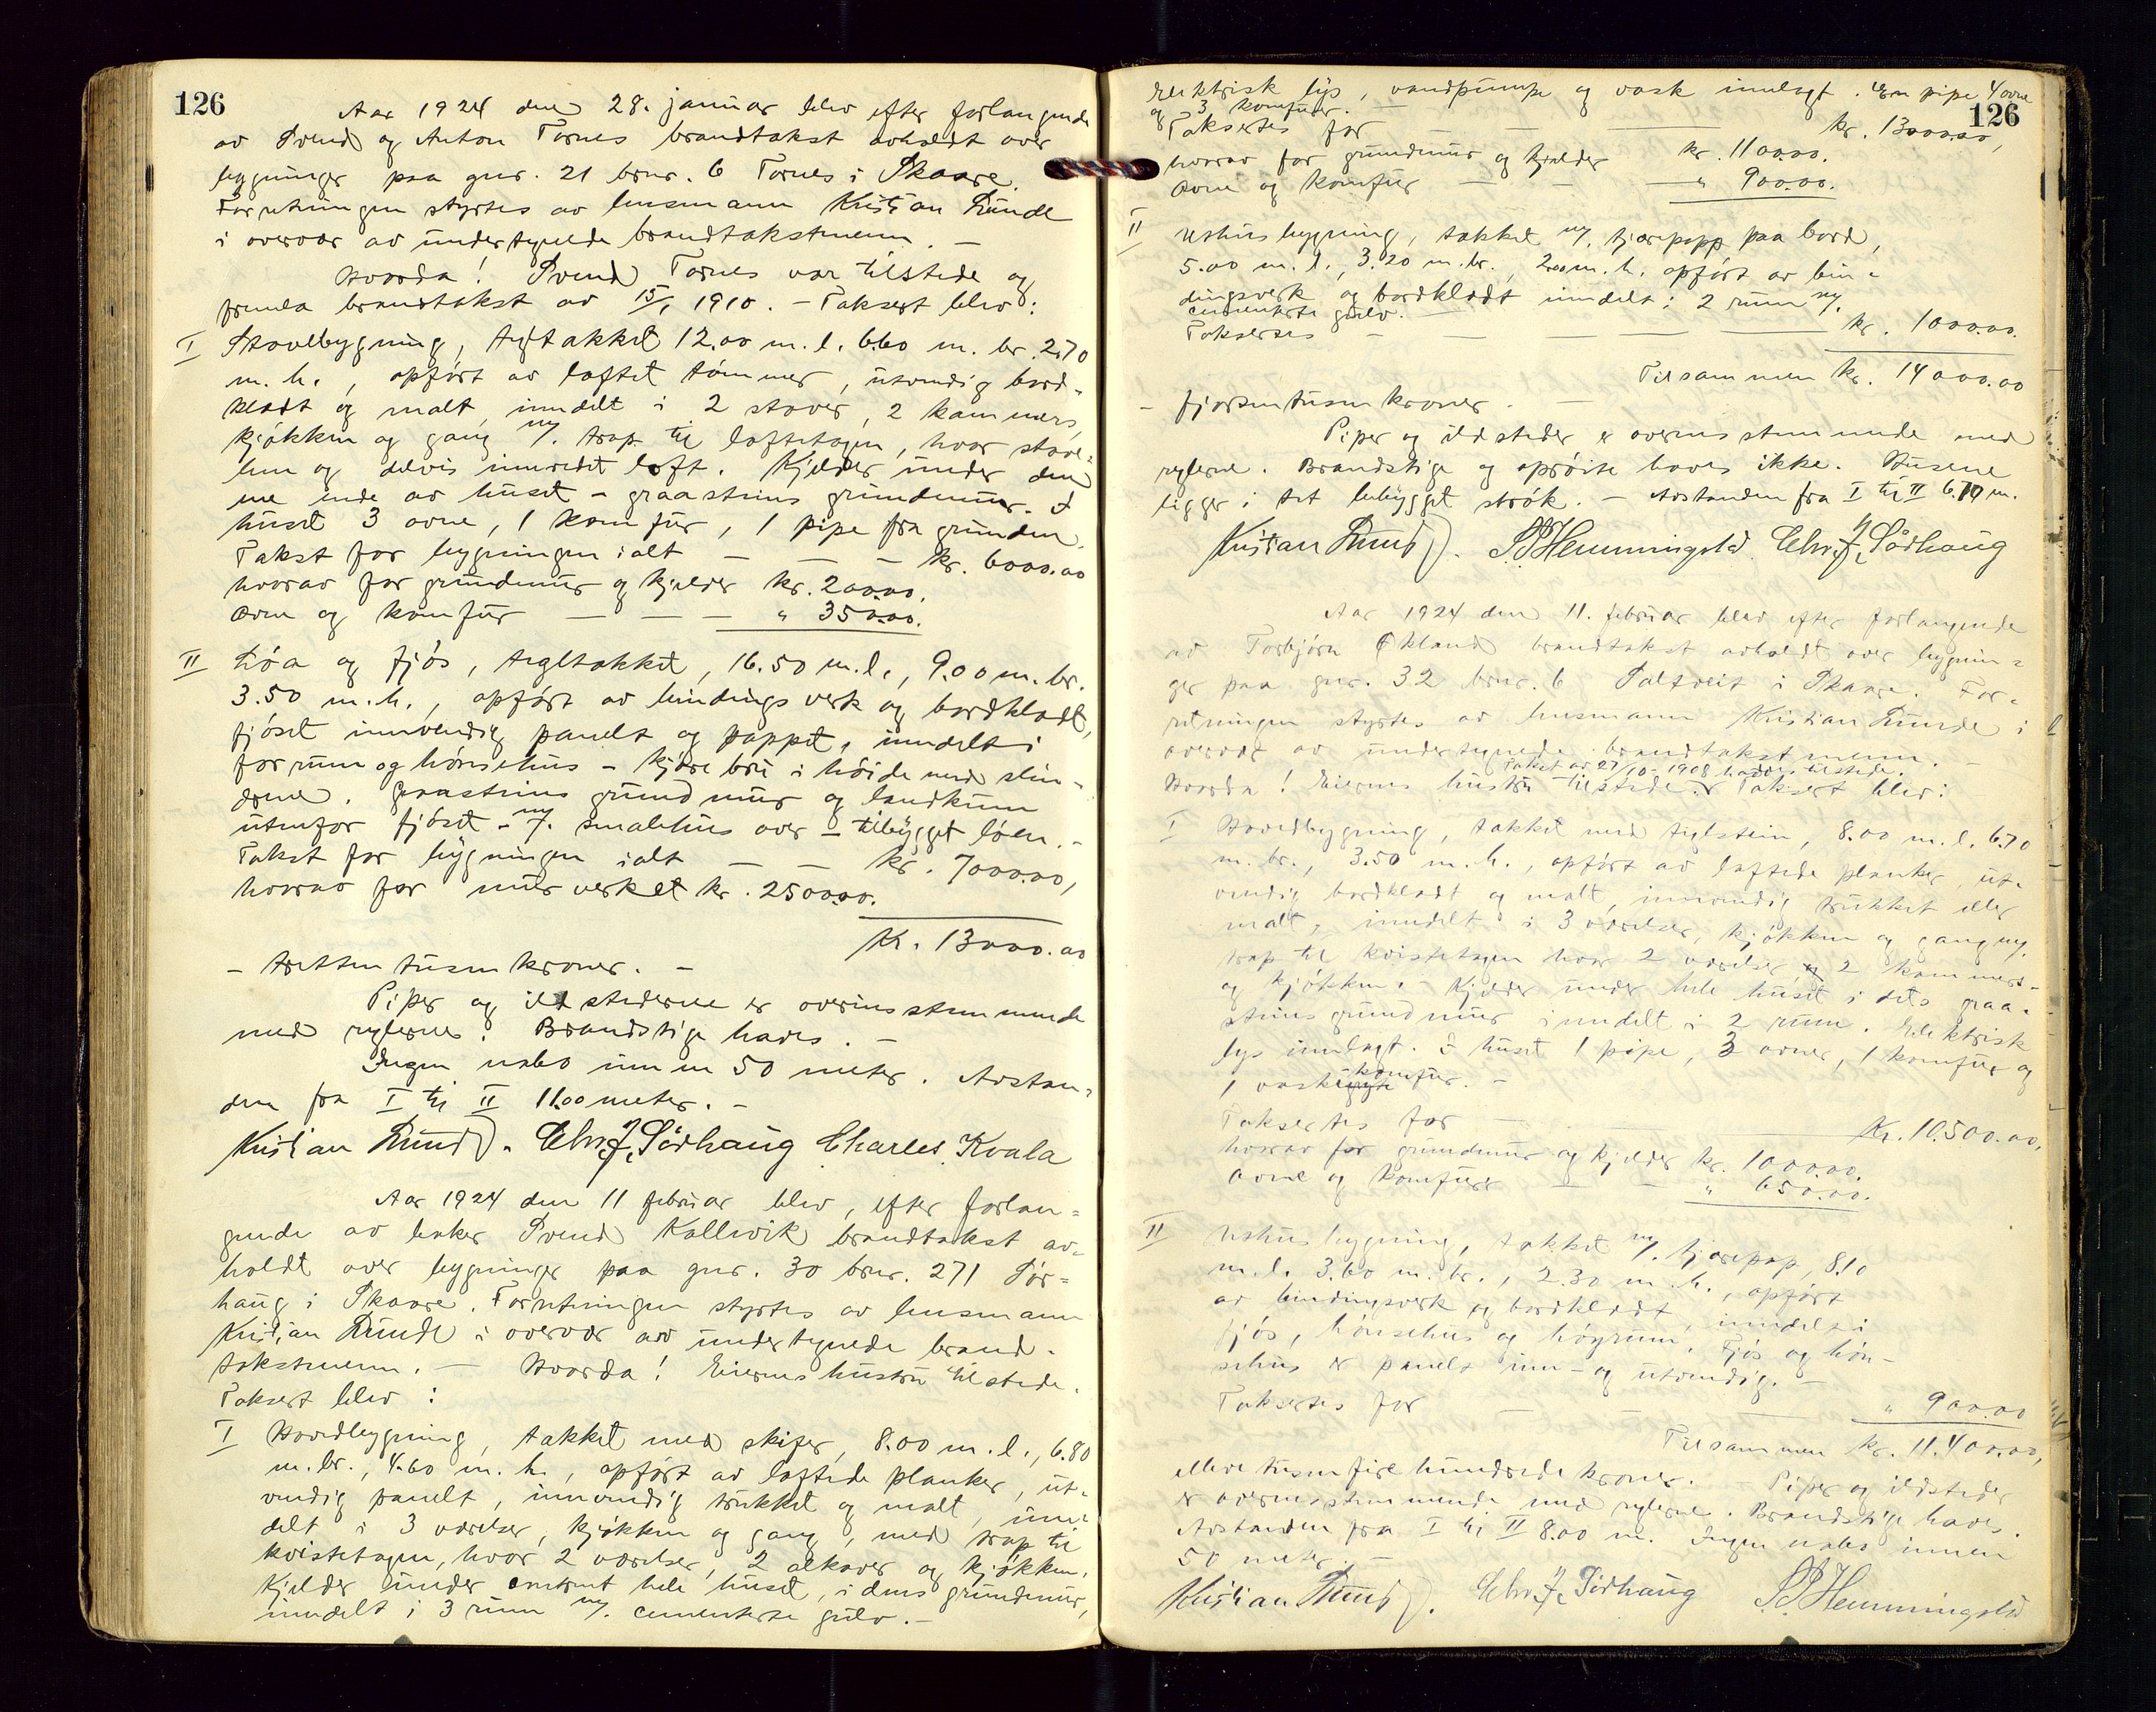 126
Aar 1924 den 28. januar blev efter forlangende
av Svend og Anton Tornes brandtakst avholdt over
bygninger paa gnr. 21 brnr. 6 Tornes i Skaare.
Forretningen styrtes av lensmann Kristian Lunde
i overvær av undertegnede brandtakstmenn. —
Hvorda! Svend Tornes var tilstede og
fremla brandtakst av 15/1 1910. – Taksert blev:
I Stovebygning, tegltakket 12.00 m. l. 6.60 m. br. 2.70
m. h., opført av laftet tømmer, utvendig bord-
klædt og malt, inndelt i 2 stover, 2 kammers,
kjøkken og gang m/. trap til loftetagen, hvor stove
lem og delvis innredet loft. Kjelder under den
ene ende av huset – graasteins grundmur. I
huset 3 ovne, 1 komfur, 1 pipe fra grunden.
Takst for bygningen ialt — — — kr. 6000.00
hvorav for grundmur og kjelder kr. 2000.00.
ovne og komfur — — — " 350.00.
II Løa og fjøs, tegltakket, 16.50 m. l., 9.00 m. br.
3.50 m. h., opført av bindingsverk og bordklædt,
fjøset innvendig panelt og pappet, inndelt i
forrum og hønsehus – kjørebru i høide med slin-
drene. Graasteins grundmur og landkum
utenfor fjøset – m/. smalehus over – tilbygget løen. –
Takst for bygningen ialt — — kr. 7000.00,
hvorav for murverket kr. 2500.00.
Kr. 13000.00
– tretten tusen kroner. –
Piper og ildstederne er overensstemmende
med reglerne. Brandstige haves. –
Ingen nabo innen 50 meter. Avstan-
den fra I til II 11.00 meter. –
Kristian Lunde. Chr. J. Sørhaug Charles Kvala
Aar 1924 den 11 februar blev, efter forlan-
gende av baker Svend Kallevik brandtakst av-
holdt over bygninger paa gnr. 30 brnr. 271 Sør-
haug i Skaare. Forretningen styrtes av lensmann
Kristian Lunde i overvær av undertegnede brand-
takstmenn. — Hvorda! Eierens hustru tilstede.
Taksert blev:
I Hovedbygning, takket med skifer, 8.00 m. l., 6.80
m. br., 4.60 m. h., opført av laftede planker, ut-
vendig panelt, innvendig trukket og malt, inn-
delt i 3 værelser, kjøkken og gang, med trap til
kvistetagen, hvor 2 værelser, 2 alkover og kjøkken.
Kjelder under omtrent hele huset, i dens grundmur,
inndelt i 3 rum m/. cementerte gulv. –
126
Elektrisk lys, vandpumpe og vask innlagt. En pipe 4 ovne
og 3 komfurer.
Taksertes for — — — kr. 13000.00,
hvorav for grundmur og kjelder kr. 1100.00.
Ovne og komfur — — — " 900.00.
II Uthusbygning, takket m/. tjærepapp paa bord,
5.00 m. l., 3.20 m. br., 2.00 m. h. opført av bin-
dingsverk og bordklædt inndelt i 2 rum m/.
cementerte gulv.
Takseres — — — — kr. 1000.00.
Tilsammen kr. 14000.00
– fjorten tusen kroner. —
Piper og ildsteder er overensstemmende med
reglerne. Brandstige og oprøite haves ikke. Husene
ligger i tet bebygget strøk. – Avstanden fra I til II 6.70 m.
Kristian Lunde. S. P. Hemmingstad. Chr. J. Sørhaug
Aar 1924 den 11. februar blev efter forlangende
av Torbjørn Økland brandtakst avholdt over bygnin-
ger paa gnr. 32 brnr. 6 Saltveit i Skaare. For-
retningen styrtes av lensmann Kristian Lunde i
overvær av undertegnede brandtakstmenn.
Takst av 27/10 - 1908 hadde tilstede.
Hvorda! Eierens hustru tilstede. Taksert blev:
I Hovedbygning, takket med teglstein, 8.00 m. l. 6.70
m. br., 3.50 m. h., opført av laftede planker ut-
vendig bordklædt og malt, innvendig trukket eller
malt, inndelt i 3 værelser, kjøkken og gang m/.
trap til kvistetagen hvor 2 værelser og 2 kammers
og kjøkken. – Kjelder under hele huset i dets graa-
steins grundmur inndelt i 2 rum. Elektrisk
lys innlagt. I huset 1 pipe, 3 ovner, 1 komfur og
1 vaskekomfur. –
Taksertes for — — — Kr. 10.500.00,
hvorav for grundmur og kjelder kr. 1000.00.
Ovne og komfurer — — " 650.00.
II Uthusbygning, takket m/. tjærepap, 8.10
m. l. 3.60 m. br., 2.30 m. h., opført
av bindingsverk og bordklædt, inndelt i
fjøs, hønsehus og høyrum. Fjøs og høn-
sehus er panelt inn- og utvendig. –
Taksertes for — — — " 900.00
Tilsammen kr. 11.400.00,
elleve tusen fire hundrede kroner. – Piper og ildsteder
er overensstemmende med reglerne. Brandstige haves.
Avstanden fra I til II 8.00 m. Ingen nabo innen
50 meter. –
Kristian Lunde. Chr. J. Sørhaug S. P. Hemmingstad